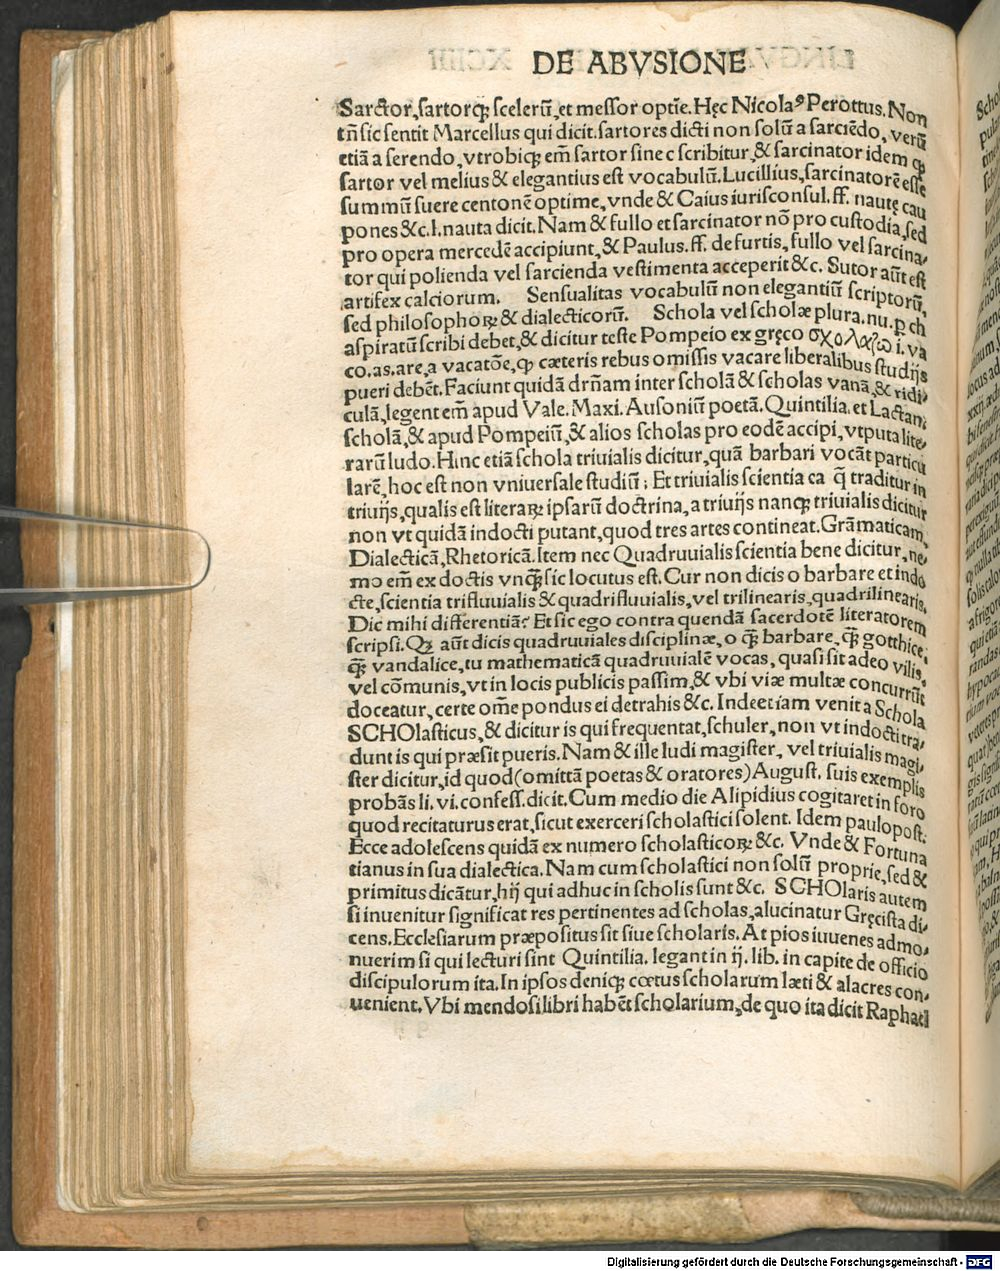 DE ABVSIONE
Sarctor,sartorq; scelerũ,et messor optĩe.Hęc Nicolaꝰ Perottus.Non
tñ sic sentit Marcellus qui dicit.sartores dicti non solũ a sarciẽdo, verũ
etiã a serendo,vtrobiq; em̃ sartor sine c scribitur,& sarcinator idem ꝙ
sartor vel melius & elegantius est vocabulũ.Lucillius,sarcinatorẽ esse
summũ suere centonẽ optime,vnde & Caius iurisconsul.ff. nautę cau
pones &c.l.nauta dicit.Nam & fullo et sarcinator nõ pro custodia,sed
pro opera mercedẽ accipiunt,& Paulus.ff. de furtis, fullo vel sarcina-
tor qui polienda vel sarcienda vestimenta acceperit &c. Sutor aũt est
artifex calciorum. Sensualitas vocabulũ non elegantiũ scriptorũ,
sed philosophoꝝ & dialecticorũ. Schola vel scholæ plura.nu.p ch
aspiratũ scribi debet,& dicitur teste Pompeio ex gręco σχολαζω i.va
co.as.are,a vacatõe,ꝙ cæteris rebus omissis vacare liberalibus studijs
pueri debẽt.Faciunt quidã drñam inter scholã & scholas vanã,& ridi-
culã,legent em̃ apud Vale.Maxi.Ausoniũ poetã.Quintilia.et Lactan.
scholã,& apud Pompeiũ,& alios scholas pro eodẽ accipi,vtputa lite-
rarũ ludo.Hinc etiã schola triuialis dicitur,quã barbari vocãt particu
larẽ,hoc est non vniuersale studiũ; Et triuialis scientia ca q̃ traditur in
triuijs,qualis est literaꝝ ipsarũ doctrina,a triuijs nanq; triuialis dicitur
non vt quidã indocti putant,quod tres artes contineat.Grãmaticam,
Dialecticã,Rhetoricã.Item nec Quadruuialis scientia bene dicitur,ne-
mo em̃ ex doctis vnq̃ sic locutus est.Cur non dicis o barbare et indo
cte,scientia trifluuialis & quadrifluuialis,vel trilinearis,quadrilinearis.
Dic mihi differentiã? Et sic ego contra quendã sacerdotẽ literatorem
scripsi.Qꝫ aũt dicis quadruuiales disciplinæ,o q̃ barbare,q̃ gotthice,
q̃ vandalice,tu mathematicã quadruuialẽ vocas, quasi sit adeo vilis,
vel cõmunis,vt in locis publicis passim,& vbi viæ multæ concurrũt
doceatur,certe om̃e pondus ei detrahis &c. Inde etiam venit a Schola
SCHOlasticus,& dicitur is qui frequentat,schuler,non vt indocti tra-
dunt is qui præsit pueris.Nam & ille ludi magister, vel triuialis magi-
ster dicitur,id quod(omittã poetas & oratores)August. suis exemplis
probãs li. vi.confess.dicit.Cum medio die Alipidius cogitaret in foro
quod recitaturus erat,sicut exerceri scholastici solent. Idem paulopost.
Ecce adolescens quidã ex numero scholasticoꝝ &c. Vnde & Fortuna
tianus in sua dialectica.Nam cum scholastici non solũ proprie,sed &
primitus dicãtur,hij qui adhuc in scholis sunt &c. SCHOlaris autem
si inuenitur significat res pertinentes ad scholas,alucinatur Gręcista di-
cens.Ecclesiarum præpositus sit siue scholaris.At pios iuuenes admo-
nuerim si qui lecturi sint Quintilia. legant in ij. lib. in capite de officio
discipulorum ita.In ipsos deniq; cœtus scholarum læti & alacres con-
uenient.Vbi mendosi libri habẽt scholarium,de quo ita dicit Raphael
Digitalisierung gefördert durch die Deutsche Forschungsgemeinschaft - DFG